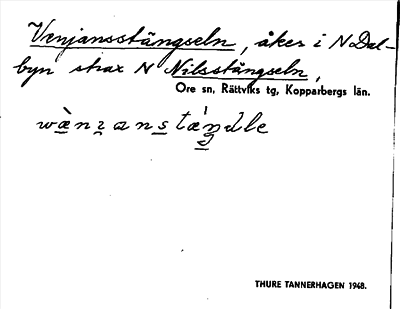 Venjansstängseln, åker i N Dal-
byn strax N Nilsstängseln,
Ore sn, Rättviks tg, Kopparbergs län.
THURE TANNERHAGEN 1948.